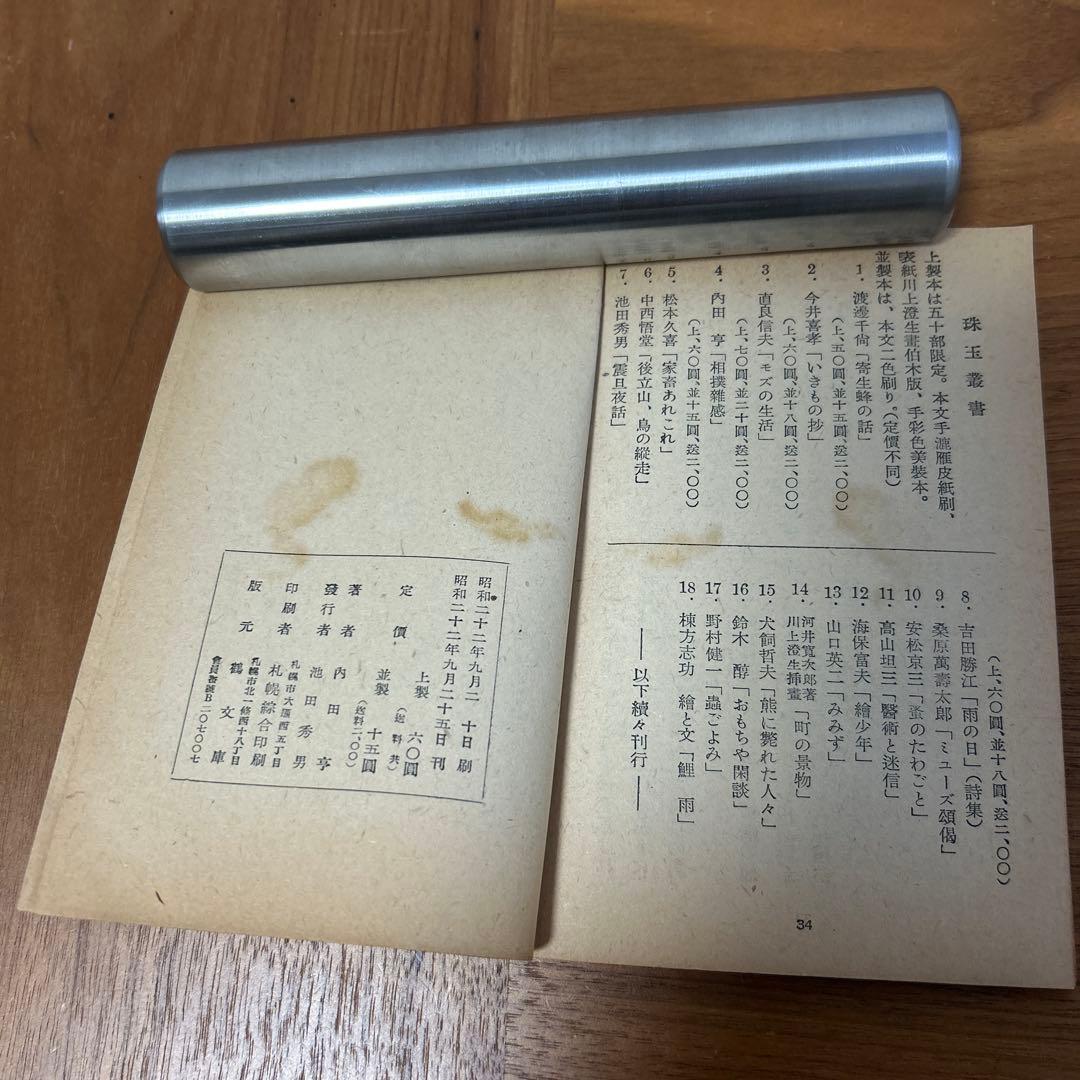 珠玉叢書
上製本は五十部限定。本文手漉雁皮紙刷、
表紙川上澄生畫伯木版、手彩色美裝本。
並製本は、本文二色刷り。(定價不同)
1．渡邊千尙「寄生蜂の話」
(上、五〇圓、並十五圓、送二、〇〇)
2．今井喜孝「いきもの抄」
(上、六〇圓、並十八圓、送二、〇〇)
3．直良信夫「モズの生活」
(上、七〇圓、並二十圓、送二、〇〇)
4．內田　亨「相撲雜感」
(上、六〇圓、並十五圓、送二、〇〇)
5．松本久喜「家畜あれこれ」
6．中西悟堂「後立山、鳥の縱走」
7．池田秀男「震旦夜話」
(上、六〇圓、並十八圓、送二、〇〇)
8．吉田勝江「雨の日」(詩集)
9．桑原萬壽太郎「ミューズ頌偈」
10．安松京三「蚤のたわごと」
11．高山坦三「醫術と迷信」
12．海保富夫「繪少年」
13．山口英二「みみず」
14．河井寬次郎著
川上澄生挿畫「町の景物」
15．犬飼哲夫「熊に斃れた人々」
16．鈴木　醇「おもちや閑談」
17．野村健一「蟲ごよみ」
18．棟方志功　繪と文「鯉　雨」
――以下續々刊行――
34
昭和二十二年九月二十日刷
昭和二十二年九月二十五日刊
定價　上製　六〇圓
(送料共)
並製　十五圓
(送料二、〇〇)
著者　內田　亨
發行者　池田秀男
札幌市大通西五丁目
印刷者　札幌綜合印刷
札幌市北一條西十八丁目
版元　鶴文庫
會員番號B二〇七〇〇七